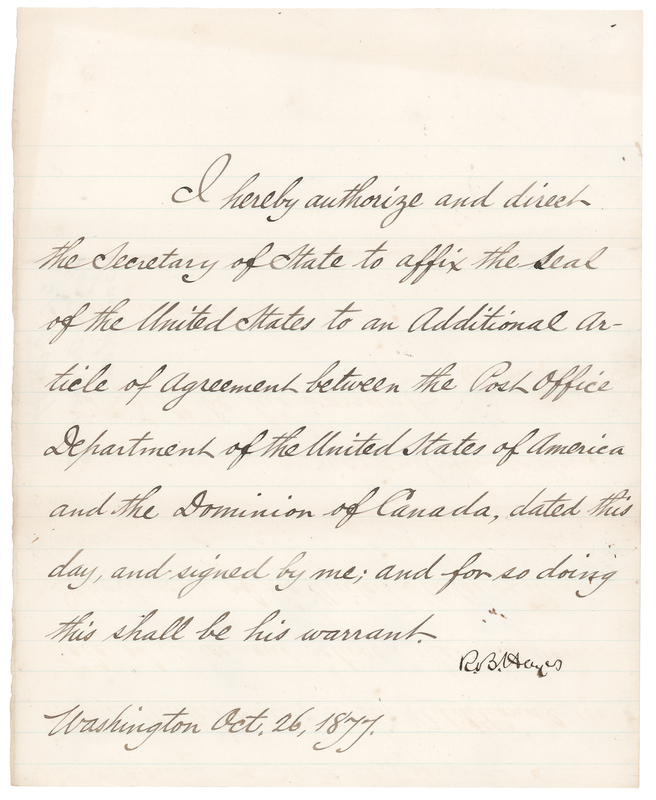 I hereby authorize and direct
the Secretary of State to affix the seal
of the United States to an Additional Ar-
ticle of Agreement between the Post Office
Department of the United States of America
and the Dominion of Canada, dated this
day, and signed by me; and for so doing
this shall be his warrant.
R.B. Hayes
Washington Oct. 26, 1877.